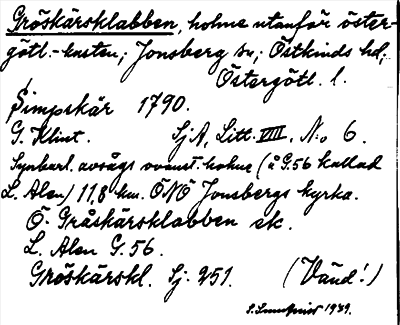 Gröskärsklabben, holme utanför öster-
götl.-kusten; Jonsberg sn; Östkinds hd;
Östergötl. l.
Simpskär 1790.
G. Klint. SjA, Litt. VIII, N:o 6.
Synbarl. avsågs ovanst. holme (å G.56 kallad
L. Alen) 11,8 km. ÖNÖ Jonsbergs kyrka.
Ö. Gråskärsklabben ek.
L. Alen G. 56.
Gröskärskl. Sj. 251. (Vänd!)
1939.